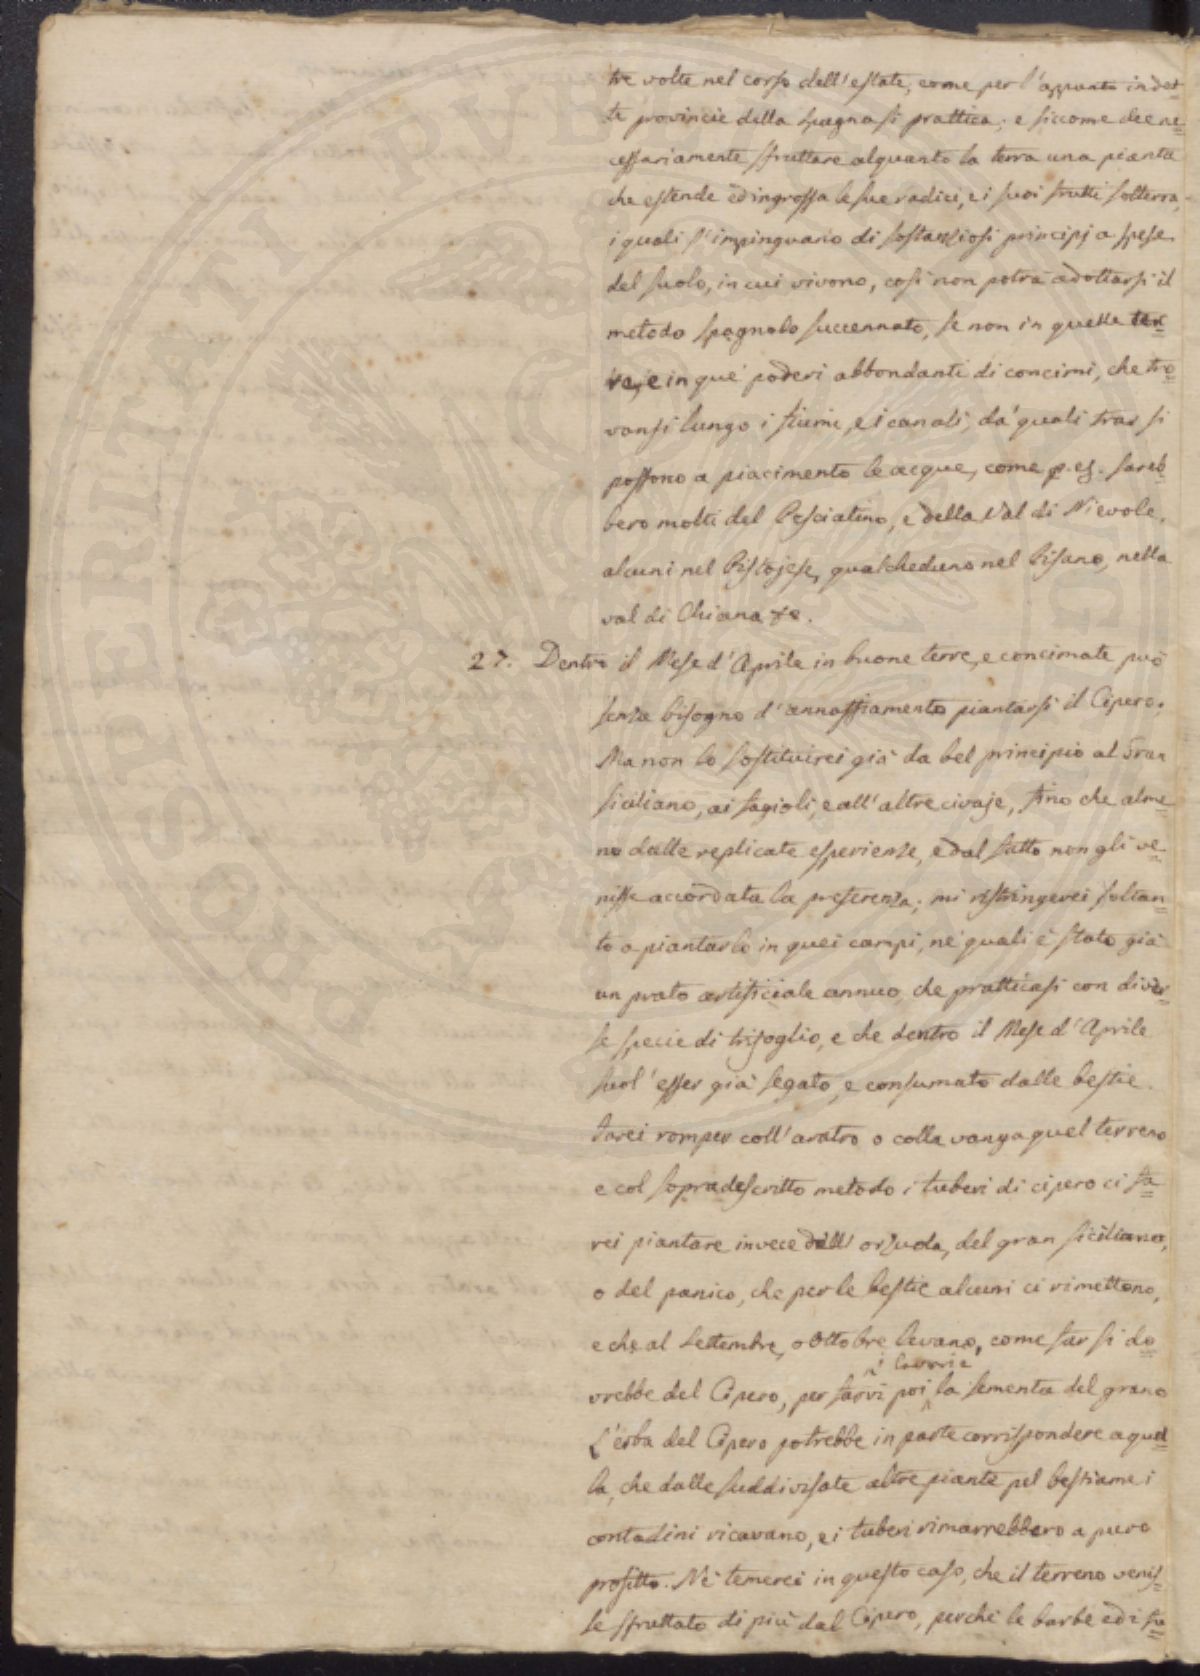 tre volte nel corso dell'estate, come per l'appunto in det-
te provincie della Spagna si prattica; e siccome dee ne-
cessariamente sfruttare alquanto la terra una pianta
che estende ed ingrossa le sue radici, e i suoi frutti sotterra,
i quali s'impinguano di sostanziosi principj a spese
del suolo, in cui vivono, così non potrà adottarsi il
metodo spagnolo succennato, se non in quelle ter-
re, e in que' poderi abbondanti di concimi, che tro-
vansi lungo i fiumi, e i canali, da' quali trar si
possono a piacimento le acque, come p. es. sareb-
bero molti del Pesciatino, e della Val di Nievole,
alcuni nel Pistojese, qualcheduno nel Pisano, nella
val di Chiana &c.
27. Dentro il Mese d'Aprile in buone terre, e concimate può
senza bisogno d'annaffiamento piantarsi il Cipero.
Ma non lo sostituirei già da bel principio al Gran
siciliano, ai fagioli, e all'altre civaje, fino che alme-
no dalle replicate esperienze, e dal fatto non gli ve-
nisse accordata la preferenza; mi ristringerei soltan-
to a piantarlo in quei campi, ne' quali è stato già
un prato artificiale annuo, che pratticasi con diver-
se specie di trifoglio, e che dentro il Mese d'Aprile
suol' esser già segato, e consumato dalle bestie.
Farei romper coll'aratro o colla vanga quel terreno
e col sopradescritto metodo i tuberi di cipero ci fa-
rei piantare invece dell' orzuola, del gran siciliano,
o del panico, che per le bestie alcuni ci rimettono,
e che al Settembre, o Ottobre levano, come far si do-
i lavori e
vrebbe del Cipero, per farvi poi la sementa del grano
L'erba del Cipero potrebbe in parte corrispondere a quel-
la, che dalle suddivisate altre piante pel bestiame i
contadini ricavano, e i tuberi rimarrebbero a puro
profitto. Nè temerei in questo caso, che il terreno venis-
se sfruttato di più dal Cipero, perchè le barbe ed i fu-